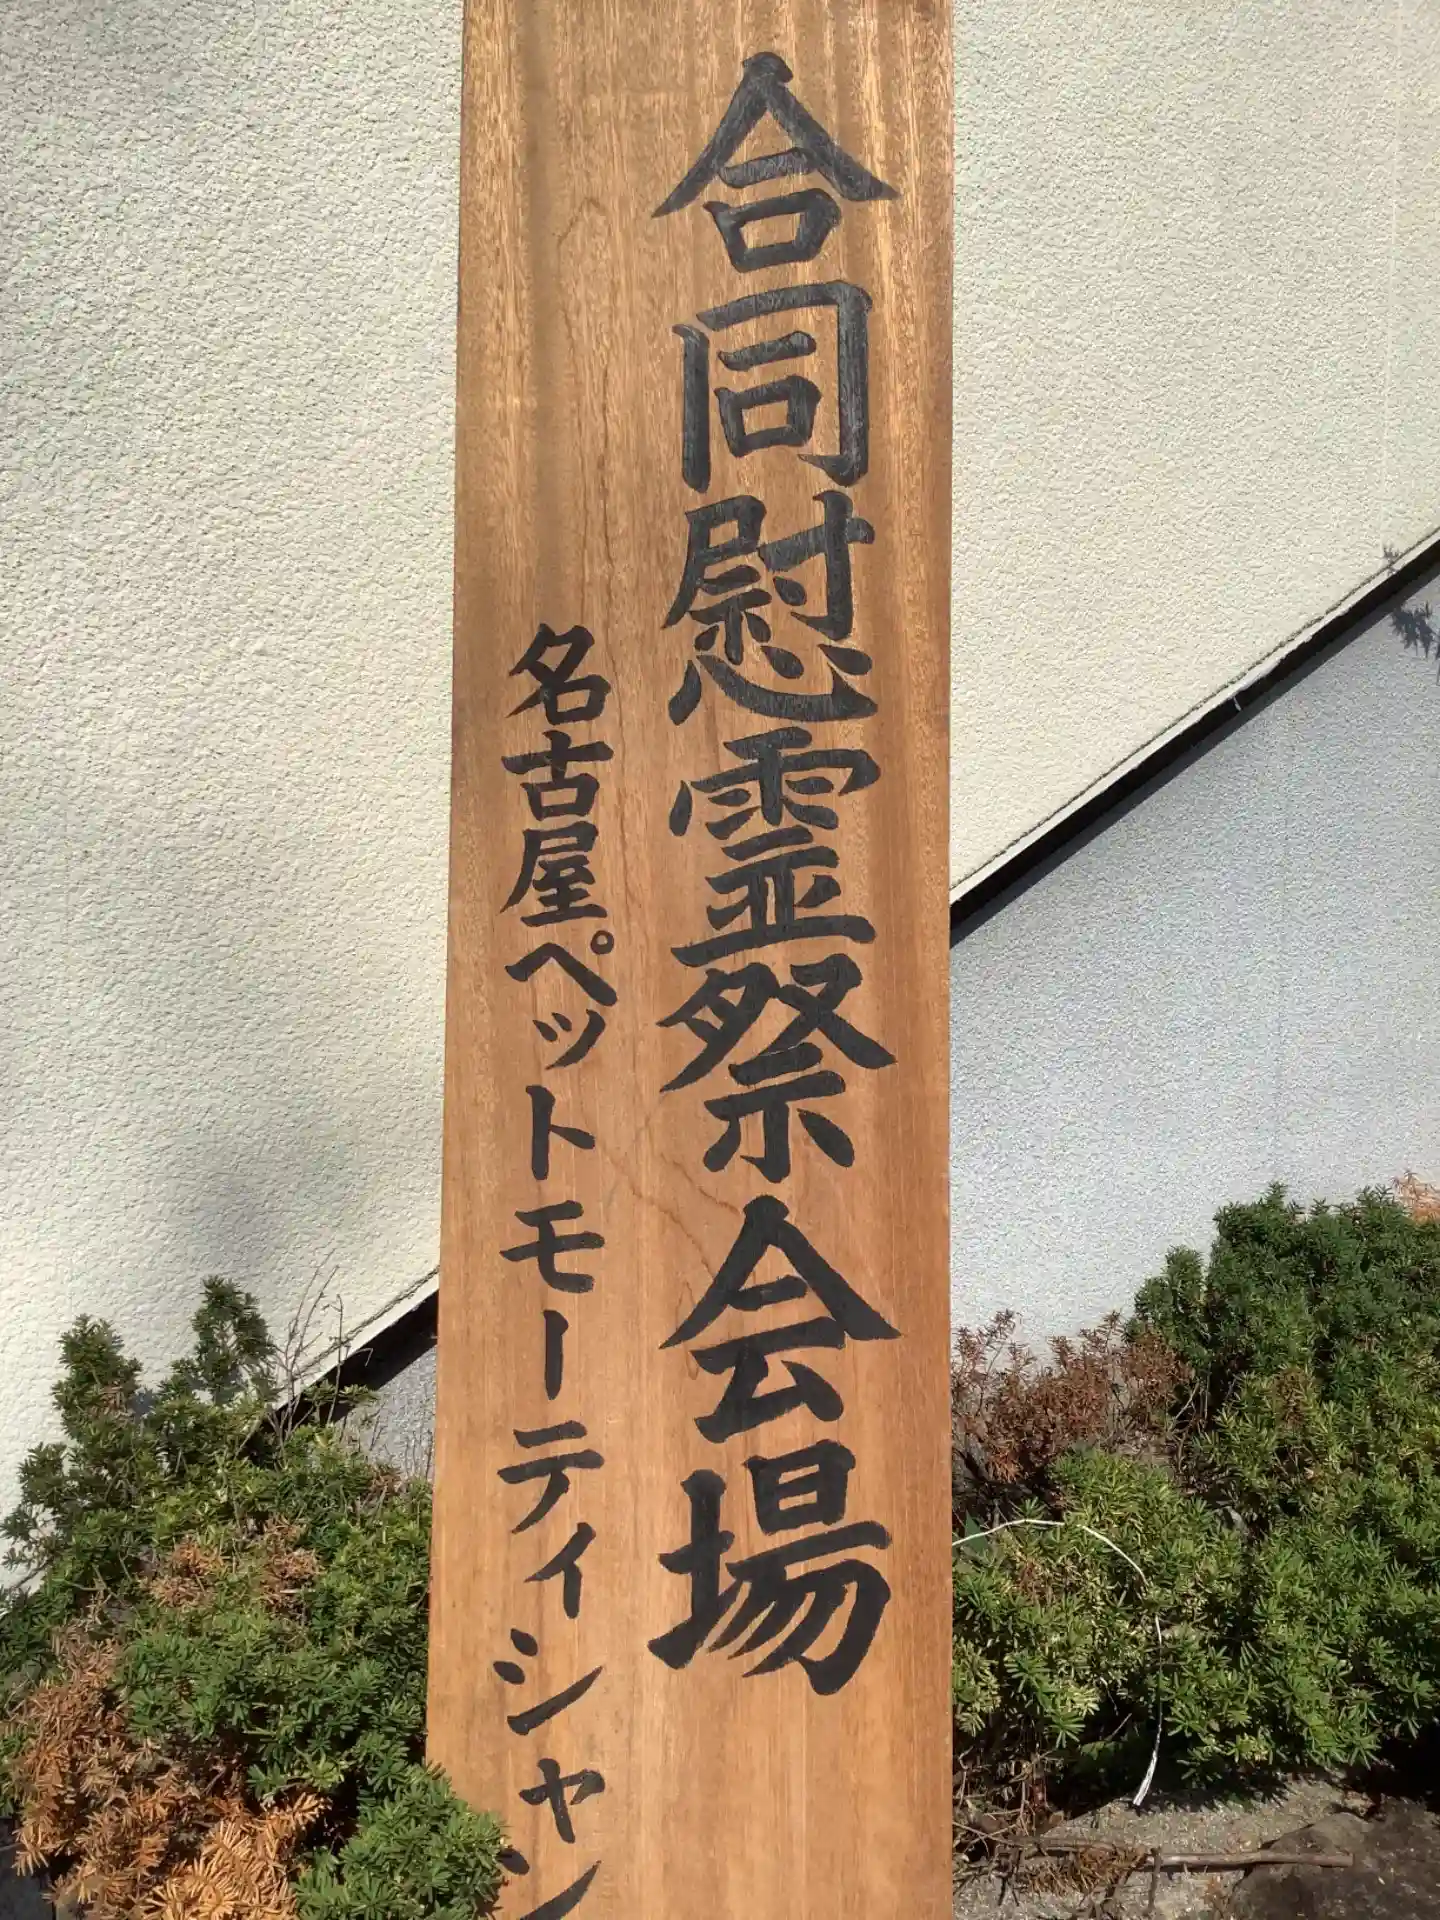 合同慰霊祭会場
名古屋ペットモーティシャン